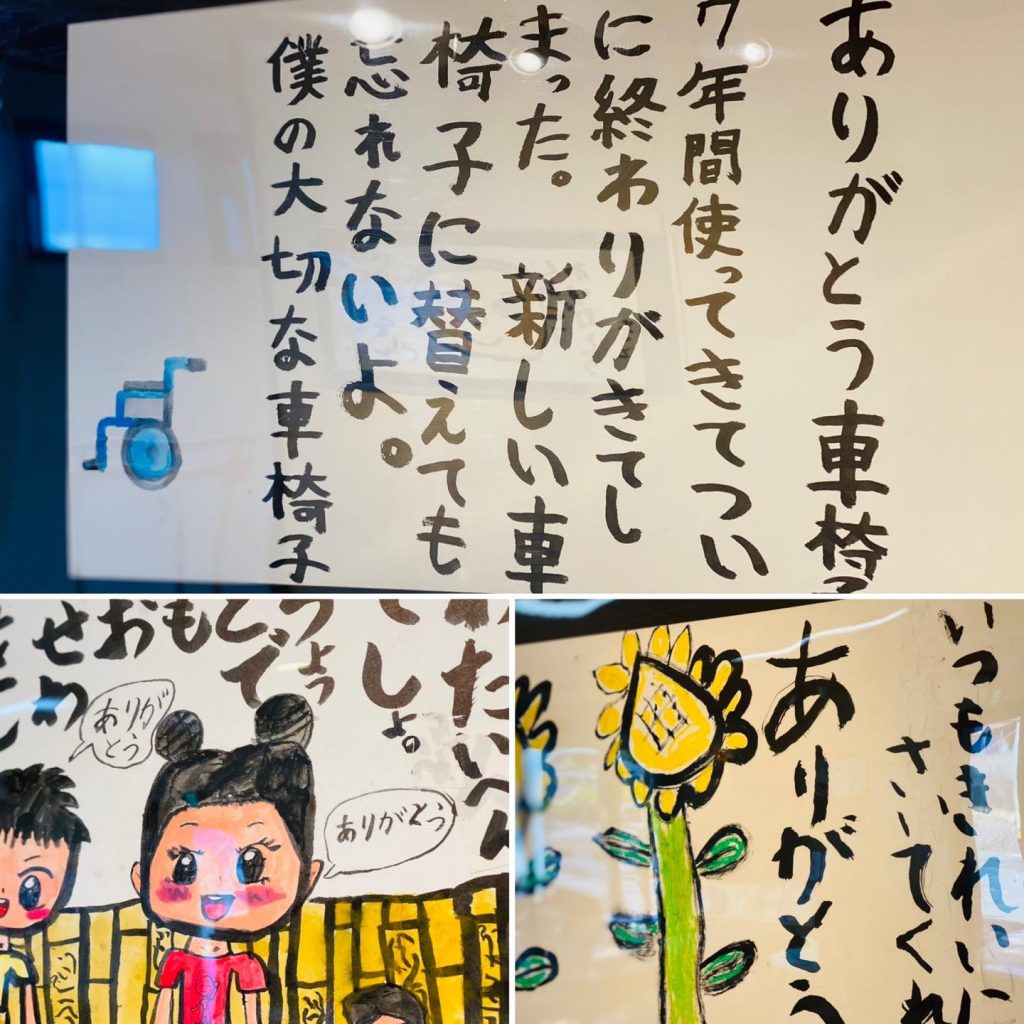 ありがとう車椅
7年間使ってきてつい
に終わりがきてし
まった。 新しい車
椅子に替えても
忘れないよ。
僕の大切な車椅子
たいへん
でしょ。
おもて
せわ
ありがとう
ありがとう
いつもきれいに
さいてくれ
ありがとう